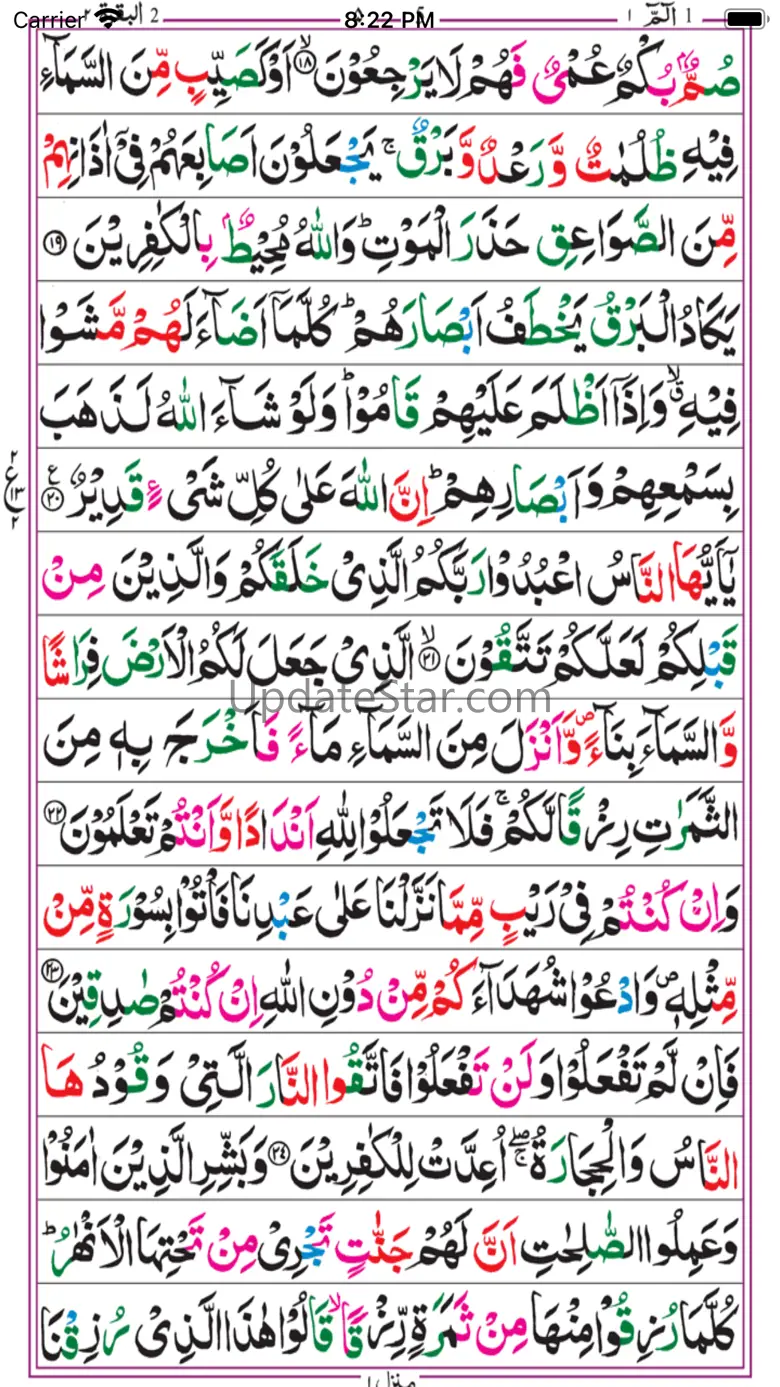 Carrier 8:22 PM
البقرة ٢ 2 الٓمّٓ ١ 1
صُمٌّۢ بُكْمٌ عُمْیٌ فَهُمْ لَا یَرْجِعُوْنَ ۙ﴿۱۸﴾ اَوْ كَصَیِّبٍ مِّنَ السَّمَآءِ
فِیْهِ ظُلُمٰتٌ وَّرَعْدٌ وَّبَرْقٌ ۚ یَجْعَلُوْنَ اَصَابِعَهُمْ فِیْۤ اٰذَانِهِمْ
مِّنَ الصَّوَاعِقِ حَذَرَ الْمَوْتِ ؕ وَاللّٰهُ مُحِیْطٌۢ بِالْكٰفِرِیْنَ ﴿۱۹﴾
یَكَادُ الْبَرْقُ یَخْطَفُ اَبْصَارَهُمْ ؕ كُلَّمَاۤ اَضَآءَ لَهُمْ مَّشَوْا
فِیْهِ ۙۗ وَاِذَاۤ اَظْلَمَ عَلَیْهِمْ قَامُوْا ؕ وَلَوْ شَآءَ اللّٰهُ لَذَهَبَ
بِسَمْعِهِمْ وَاَبْصَارِهِمْ ؕ اِنَّ اللّٰهَ عَلٰی كُلِّ شَیْءٍ قَدِیْرٌ ﴿۲۰﴾ ع
٢ ع ١٣ ٢
یٰۤاَیُّهَا النَّاسُ اعْبُدُوْا رَبَّكُمُ الَّذِیْ خَلَقَكُمْ وَالَّذِیْنَ مِنْ
قَبْلِكُمْ لَعَلَّكُمْ تَتَّقُوْنَ ۙ﴿۲۱﴾ الَّذِیْ جَعَلَ لَكُمُ الْاَرْضَ فِرَاشًا
UpdateStar.com
وَّالسَّمَآءَ بِنَآءً ۪ وَّاَنْزَلَ مِنَ السَّمَآءِ مَآءً فَاَخْرَجَ بِهٖ مِنَ
الثَّمَرٰتِ رِزْقًا لَّكُمْ ۚ فَلَا تَجْعَلُوْا لِلّٰهِ اَنْدَادًا وَّاَنْتُمْ تَعْلَمُوْنَ ﴿۲۲﴾
وَاِنْ كُنْتُمْ فِیْ رَیْبٍ مِّمَّا نَزَّلْنَا عَلٰی عَبْدِنَا فَاْتُوْا بِسُوْرَةٍ مِّنْ
مِّثْلِهٖ ۪ وَادْعُوْا شُهَدَآءَكُمْ مِّنْ دُوْنِ اللّٰهِ اِنْ كُنْتُمْ صٰدِقِیْنَ ﴿۲۳﴾
فَاِنْ لَّمْ تَفْعَلُوْا وَلَنْ تَفْعَلُوْا فَاتَّقُوا النَّارَ الَّتِیْ وَقُوْدُهَا
النَّاسُ وَالْحِجَارَةُ ۖۚ اُعِدَّتْ لِلْكٰفِرِیْنَ ﴿۲۴﴾ وَبَشِّرِ الَّذِیْنَ اٰمَنُوْا
وَعَمِلُوا الصّٰلِحٰتِ اَنَّ لَهُمْ جَنّٰتٍ تَجْرِیْ مِنْ تَحْتِهَا الْاَنْهٰرُ ؕ
كُلَّمَا رُزِقُوْا مِنْهَا مِنْ ثَمَرَةٍ رِّزْقًا ۙ قَالُوْا هٰذَا الَّذِیْ رُزِقْنَا
منزل ١